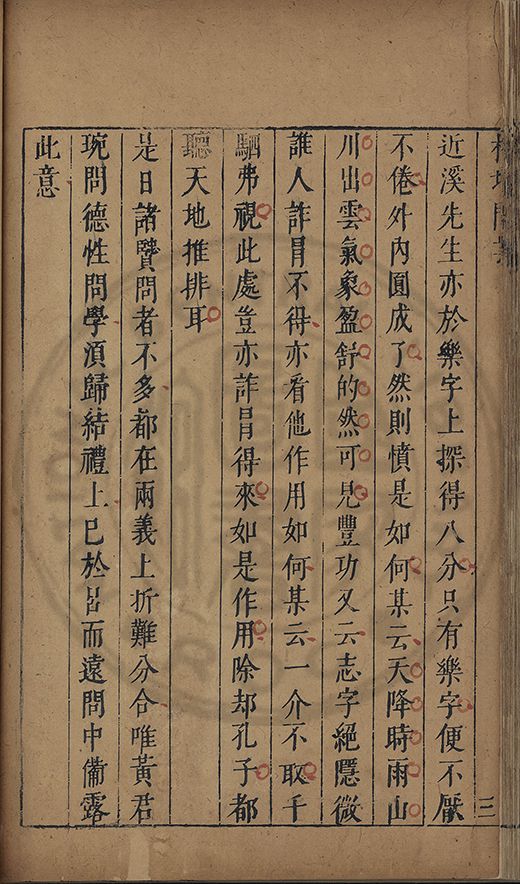 近溪先生亦於樂字上探得八分只有樂字便不厭
不倦外內圓成了然則憤是如何某云天降時雨山
川出雲氣象盈舒的然可見豐功又云志字絕隱微
誰人詐冐不得亦看他作用如何某云一介不取千
駟弗視此處豈亦詐冐得來如是作用除却孔子都
聽天地推排耳
是日諸賢問者不多都在兩義上折難分合唯黃君
琬問德性問學湏歸結禮上已於呂而遠問中備露
此意
三